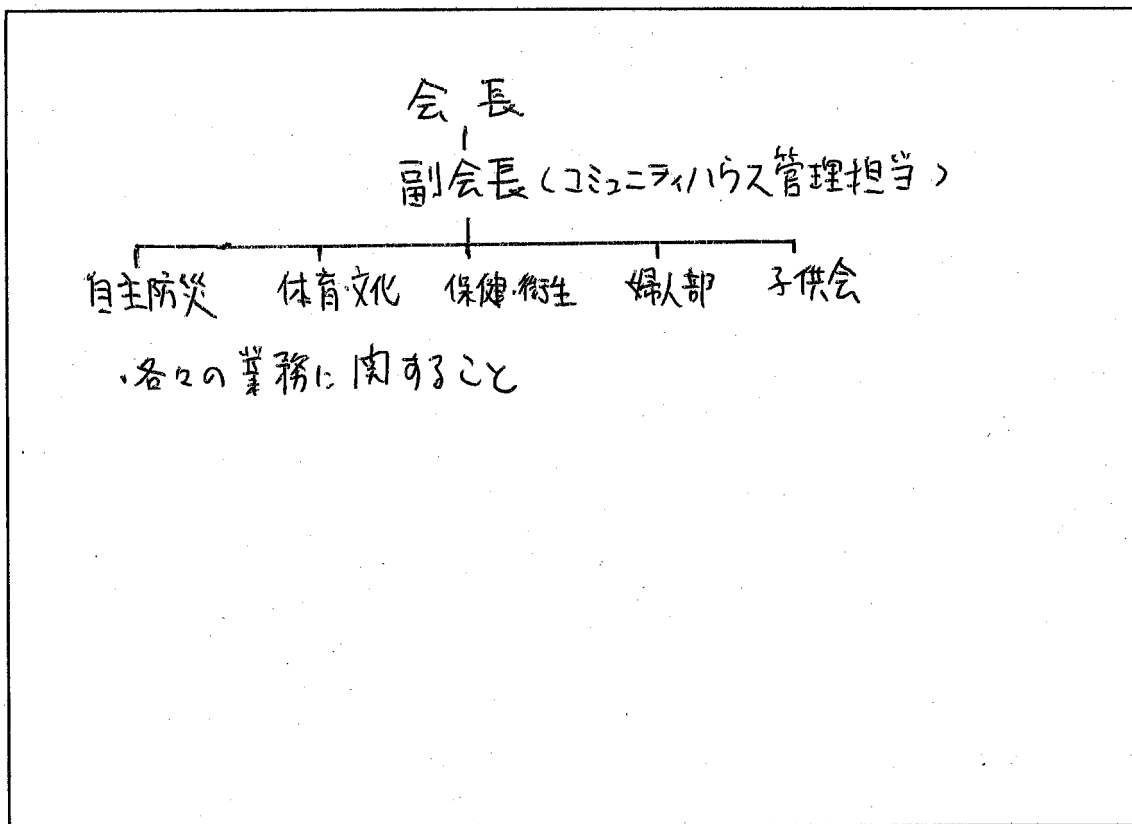 会長
副会長(コミュニティハウス管理担当)
自主防災 体育・文化 保健・衛生 婦人部 子供会
・各々の業務に関すること